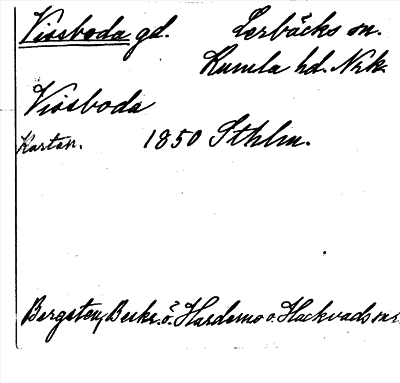 Vissboda gd. Lerbäcks sn.
Kumla hd. Nrk.
Vissboda
Kartan. 1850 Sthlm.
Bergsten, Beskr. ö. Hardemo o. Hackvads snr.